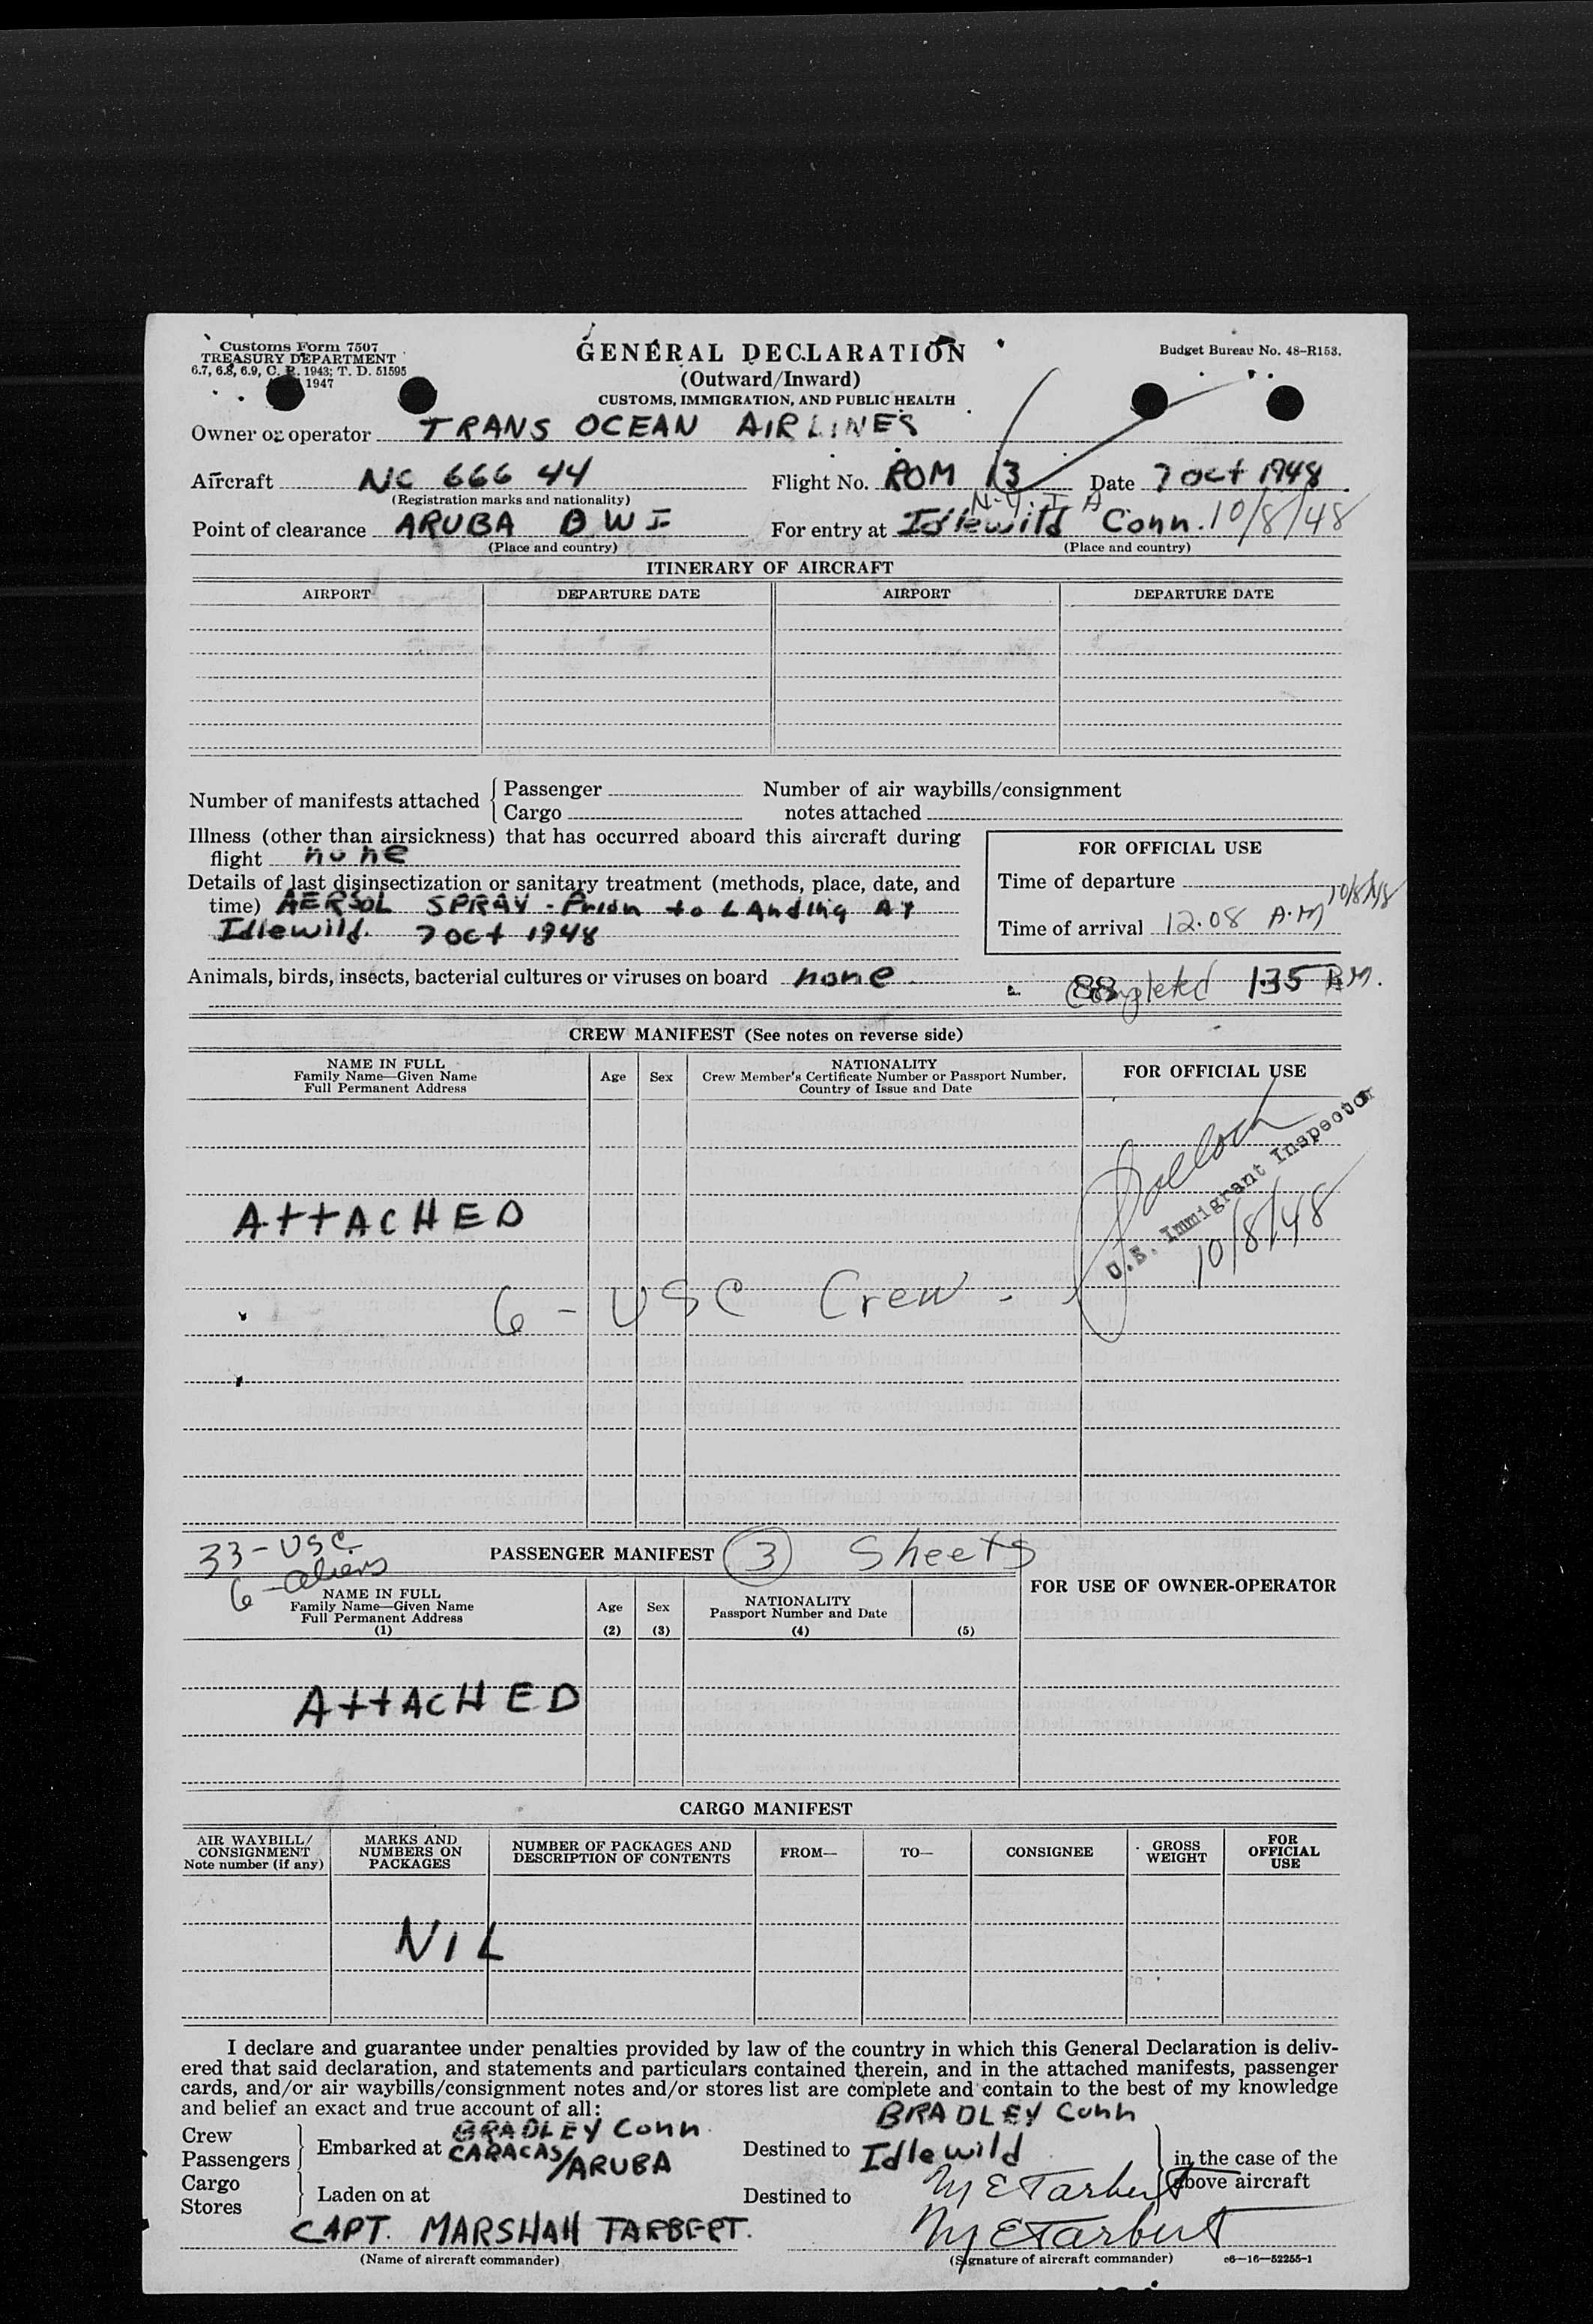 Customs Form 7507
TREASURY DEPARTMENT
6.7, 6.8, 6.9, C. R. 1943; T. D. 51595
1947
GENERAL DECLARATION
(Outward/Inward)
CUSTOMS, IMMIGRATION, AND PUBLIC HEALTH
Budget Bureau No. 48-R153.
Owner or operator TRANS OCEAN AIRLINES
Aircraft NC 666 44 Flight No. ROM 13 Date 7 Oct 1948
(Registration marks and nationality)
N.Y. I A
Point of clearance ARUBA DWI For entry at Idlewild Conn. 10/8/48
(Place and country) (Place and country)
ITINERARY OF AIRCRAFT
AIRPORT DEPARTURE DATE AIRPORT DEPARTURE DATE
Number of manifests attached { Passenger Number of air waybills/consignment
Cargo notes attached
Illness (other than airsickness) that has occurred aboard this aircraft during
flight none
Details of last disinsectization or sanitary treatment (methods, place, date, and
time) AERSOL SPRAY - Prion to LAnding AT
Idlewild. 7 OCT 1948
FOR OFFICIAL USE
Time of departure
10/8/48
Time of arrival 12.08 A.M
Animals, birds, insects, bacterial cultures or viruses on board none
88 Completed 135 AM.
CREW MANIFEST (See notes on reverse side)
NAME IN FULL
Family Name—Given Name
Full Permanent Address
Age
Sex
NATIONALITY
Crew Member's Certificate Number or Passport Number,
Country of Issue and Date
FOR OFFICIAL USE
U.S. Immigrant Inspector
10/8/48
ATTACHED
6 - USC Crew -
33 - USC
6 - aliens
PASSENGER MANIFEST 3 Sheets
NAME IN FULL
Family Name—Given Name
Full Permanent Address
(1)
Age
(2)
Sex
(3)
NATIONALITY
Passport Number and Date
(4) (5)
FOR USE OF OWNER-OPERATOR
ATTACHED
CARGO MANIFEST
AIR WAYBILL/
CONSIGNMENT
Note number (if any)
MARKS AND
NUMBERS ON
PACKAGES
NUMBER OF PACKAGES AND
DESCRIPTION OF CONTENTS
FROM—
TO—
CONSIGNEE
GROSS
WEIGHT
FOR
OFFICIAL
USE
NIL
I declare and guarantee under penalties provided by law of the country in which this General Declaration is deliv-
ered that said declaration, and statements and particulars contained therein, and in the attached manifests, passenger
cards, and/or air waybills/consignment notes and/or stores list are complete and contain to the best of my knowledge
and belief an exact and true account of all:
BRADLEY Conn. BRADLEY Conn
Crew
Passengers } Embarked at CARACAS/ARUBA Destined to Idlewild } in the case of the
above aircraft
Cargo
Stores } Laden on at Destined to M E Tarbert
CAPT. MARSHAH TARBERT. M E Tarbert
(Name of aircraft commander) (Signature of aircraft commander) c6—16—52255-1